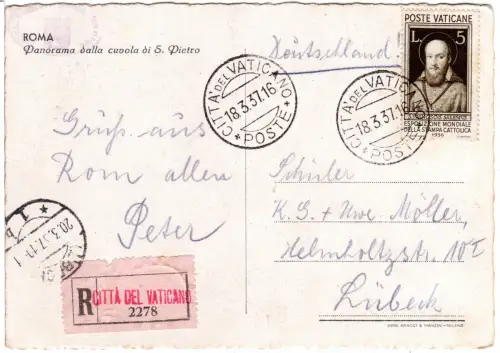 ROMA
Panorama dalla cupola di S. Pietro
Deutschland!
POSTE VATICANE
L. 5
ESPOSIZIONE MONDIALE
DELLA STAMPA CATTOLICA
1936
CITTÀ DEL VATICANO
18.3.37.16
POSTE
CITTÀ DEL VATICANO
18.3.37.16
POSTE
Grüße aus
Rom allen
Peter
Schüler
K. G. + Uwe Möller,
Helmholtzstr. 10 I
Lübeck
20.3.37.11-1
R
CITTÀ DEL VATICANO
2278